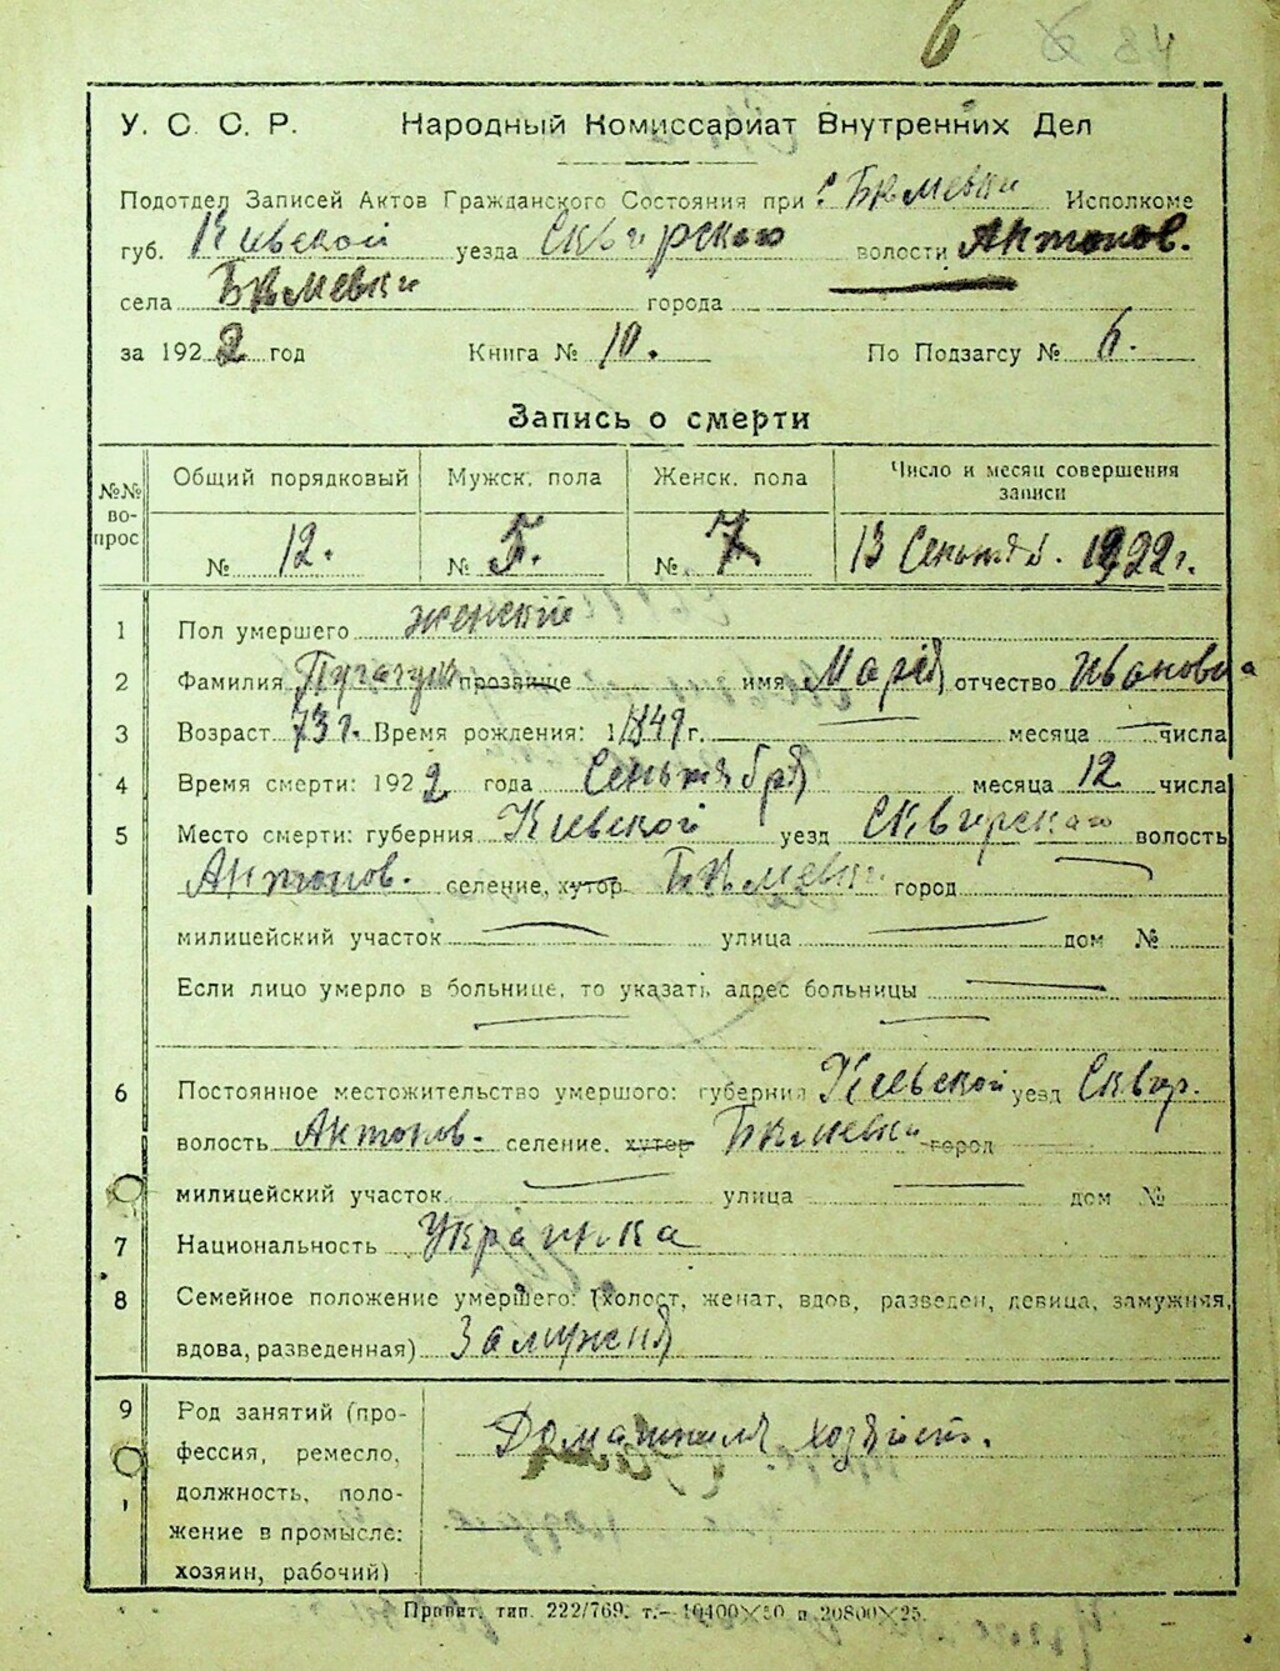 6
84
У. С. С. Р. Народный Комиссариат Внутренних Дел
Подотдел Записей Актов Гражданского Состояния при Исполкоме
губ. Киевской уезда Сквирского волости Антонов.
села города
за 1922 год Книга № 10. По Подзагсу № 6.
Запись о смерти
№№ вопрос Общий порядковый Мужск. пола Женск. пола Число и месяц совершения записи
№ 12. № 5. № 7. 13 1922 г.
1 Пол умершего женский
2 Фамилия прозвище имя Марія отчество Ивановна
3 Возраст 73 г. Время рождения: 1849 г. месяца числа
4 Время смерти: 1922 года Сеньтября месяца 12 числа
5 Место смерти: губерния Киевской уезд Сквирского волость
Антонов. селение, хутор город
милицейский участок улица дом №
Если лицо умерло в больнице, то указать адрес больницы
6 Постоянное местожительство умершого: губерния Киевской уезд Сквир.
волость Антонов. селение. хутор город
милицейский участок улица дом №
7 Национальность Українка
8 Семейное положение умершего: (холост, женат, вдов, разведен, девица, замужняя,
вдова, разведенная) Замужня
9 Род занятий (про-
фессия, ремесло,
должность, поло-
жение в промысле:
хозяин, рабочий)
Правит. тип. 222/769. т.— 10400×50 п 20800×25.